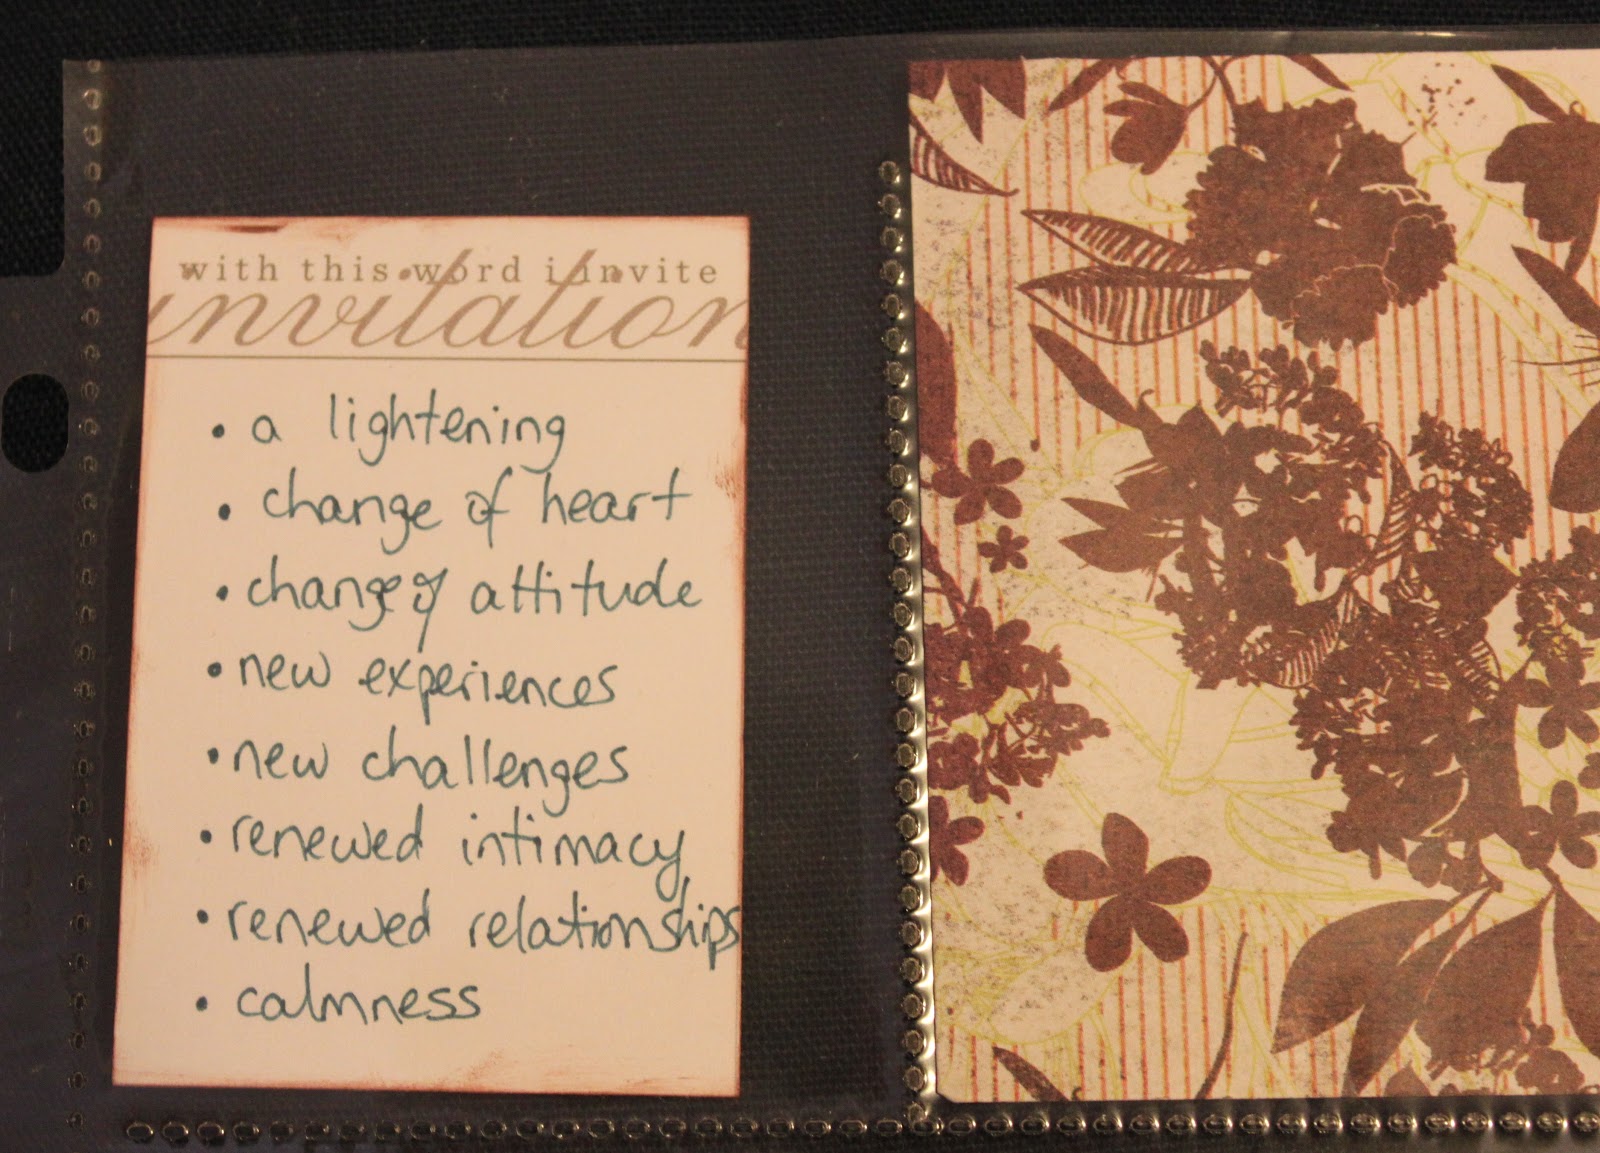 with this word i invite
invitation
• a lightening
• change of heart
• change of attitude
• new experiences
• new challenges
• renewed intimacy
• renewed relationships
• calmness